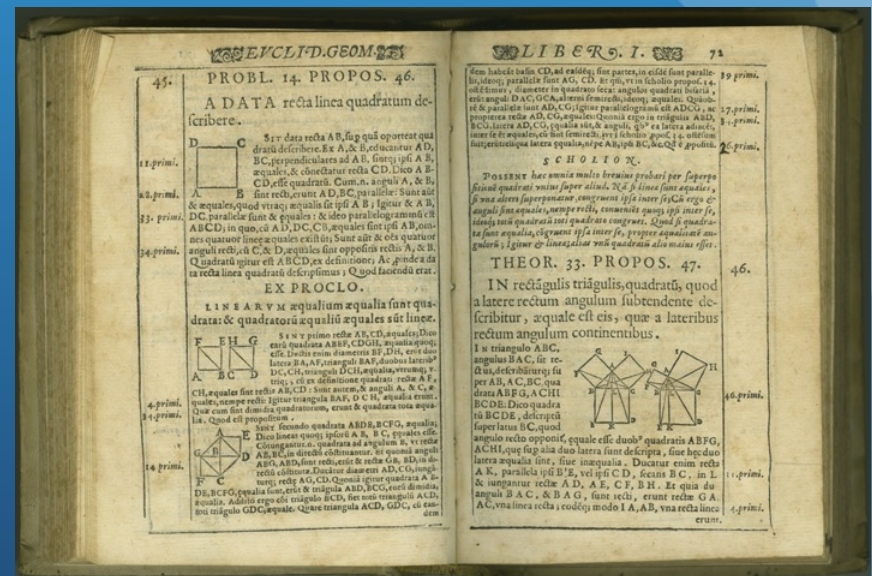 EVCLID. GEOM.
45.
PROBL. 14. PROPOS. 46.
A DATA recta linea quadratum de-
scribere.
D C
SIT data recta AB, sup quā oporteat qua
dratū describere. Ex A, & B, educantur AD,
BC, perpendiculares ad AB, sintq; ipsi AB,
11. primi.
æquales, & cōnectatur recta CD. Dico AB-
CD, esse quadratū. Cum .n. anguli A, & B,
28. primi.
A B
sint recti, erunt AD, BC, parallelæ: Sunt aūt
& æquales, quod vtraq; æqualis sit ipsi AB; Igitur & AB,
33. primi.
DC, parallelæ sunt & equales: & ideo parallelogrammū est
ABCD; in quo, cū AD, DC, CB, æquales sint ipsi AB, om-
nes quatuor lineæ æquales existūt; Sunt aūt & oēs quatuor
34. primi.
anguli recti, cū C, & D, æquales sint oppositis rectis A, & B.
Quadratū igitur est ABCD, ex definitione; Ac proinde a da
ta recta linea quadratū descripsimus; Quod faciendū erat.
EX PROCLO.
LINEARVM æqualium æqualia sunt qua-
drata: & quadratorū æqualiū æquales sūt lineæ.
F E H G
SINT primo rectæ AB, CD, æquales; Dico
earū quadrata ABEF, CDGH, æqualia quoq;
esse. Ductis enim diametris BF, DH, erūt duo
latera BA, AF, trianguli BAF, duobus laterib9
DC, CH, trianguli DCH, æqualia, vtrumq; v-
A B C D
triq; , cū ex definitione quadrati rectæ AF,
CH, æquales sint rectis AB, CD: Sunt autem, & anguli A, & C, æ
4. primi.
quales, nempe recti: Igitur triangula BAF, DCH, æqualia erunt.
34. primi.
Quæ cum sint dimidia quadratorum, erunt & quadrata tota æqua-
lia. Quod est propositum.
SINT secundo quadrata ABDE, BCFG, æqualia;
A E
Dico lineas quoq; ipsorū AB, BC, equales esse.
Cōiungantur .n. quadrata ad angulum B, vt rectæ
G B D
AB, BC, in directū cōstituantur. et quoniā anguli
14. primi.
ABG, ABD, sunt recti, erūt & rectæ GB, BD, in di-
rectū cōstitutæ. Ducātur diametri AD, CG, iungā-
F C
turq; rectæ AG, CD. Quoniā igitur quadrata AB-
DE, BCFG, equalia sunt, erūt & triāgula ABD, BCG, eorū dimidia,
æqualia. Addito ergo cōi triāgulo BCD, fiet totū triangulū ACD,
toti triāgulo GDC, æquale. Quare triangula ACD, GDC, cū ean-
dem
LIBER. I. 72
dem habeāt basin CD, ad easdēq; sint partes, in eisdē sunt paralle-
39 primi.
lis, ideoq; parallelæ sunt AG, CD. Et qm̄, vt in scholio propos. 34.
ostēdimus, diameter in quadrato secat angulos quadrati bifariā,
erūt anguli DAC, GCA, alterni semirecti, ideoq; æquales. Quāob-
27. primi.
rē & parallelæ sunt AD, CG; Igitur parallelogramū est ADCG, ac
34. primi.
propterea rectæ AD, CG, æquales: Quoniā ergo in triāgulis ABD,
BCG, latera AD, CG, equalia sūt, & anguli, qb9 ea latera adiacēt,
inter se et æquales, cū sint semirecti, vt i scholio ppos. 34. ostēsum
26. primi.
fuit; erūt reliqua latera equalia, nēpe AB, ipsi BC, &c. Qd̄ ē ppositū.
SCHOLION.
POSSENT hæc omnia multo breuius probari per superpo
sitionē quadrati vnius super aliud. Nā si lineæ sunt æquales,
si vna alteri superponatur, congruent ipsæ inter se; Cū ergo &
anguli sint æquales, nempe recti, conueniēt quoq; ipsi inter se,
ideoq; totū quadratū toti quadrato congruet. Quod si quadra-
ta sunt æqualia, cōgruent ipsa inter se, propter æqualitatē an-
gulorū; Igitur & lineæ; alias vnū quadratū alio maius esset.
THEOR. 33. PROPOS. 47.
46.
IN rectāgulis triāgulis, quadratū, quod
a latere rectum angulum subtendente de-
scribitur, æquale est eis, quæ a lateribus
rectum angulum continentibus.
IN triangulo ABC,
angulus BAC, sit re-
ctus, describāturq; su
per AB, AC, BC, qua
46. primi.
drata ABFG, ACHI
BCDE: Dico quadra
tū BCDE, descriptū
super latus BC, quod
angulo recto opponit, equale esse duob9 quadratis ABFG,
ACHI, que sup alia duo latera sunt descripta, siue hęc duo
latera æqualia sint, siue inæqualia. Ducatur enim recta
AK, parallela ipsi BE, vel ipsi CD, secans BC, in L
31. primi.
& iungantur rectæ AD, AE, CF, BH. Et quia duo
anguli BAC, & BAG, sunt recti, erunt rectæ GA.
AC, vna linea recta; eodēq; modo IA, AB, vna recta linea
4. primi.
erunt.